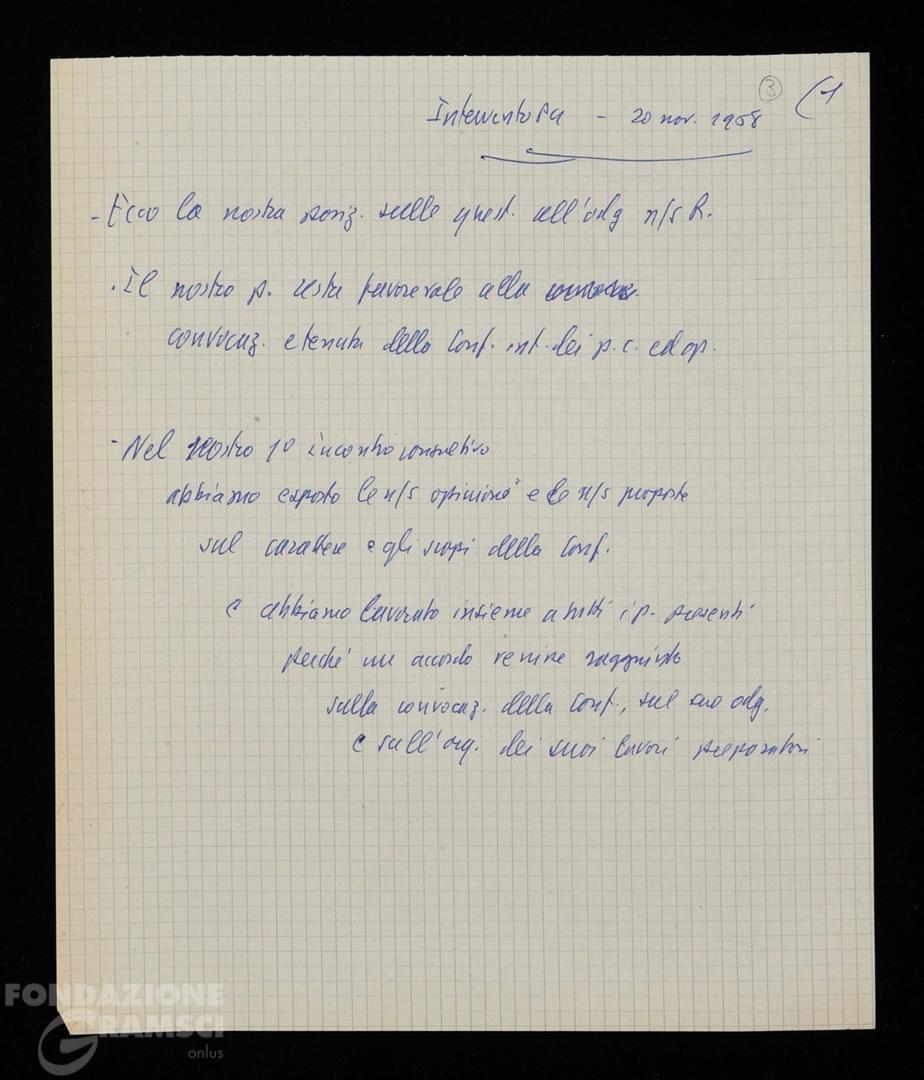 3 (1
Intervento Bp. – 20 nov. 1968
- Ecco la nostra posiz. sulle quest. all'odg n/s R.
. Il nostro p. resta favorevole alla
convocaz. e tenuta della Conf. int. dei p.c. ed op.
- Nel nostro 1° incontro consultivo
abbiamo esposto le n/s opinioni e le n/s proposte
sul carattere e gli scopi della Conf.
e abbiamo lavorato insieme a tutti i p. presenti
perché un accordo venisse raggiunto
sulla convocaz. della Conf., sul suo odg.
e sull'org. dei suoi lavori preparatori
FONDAZIONE
GRAMSCI
onlus